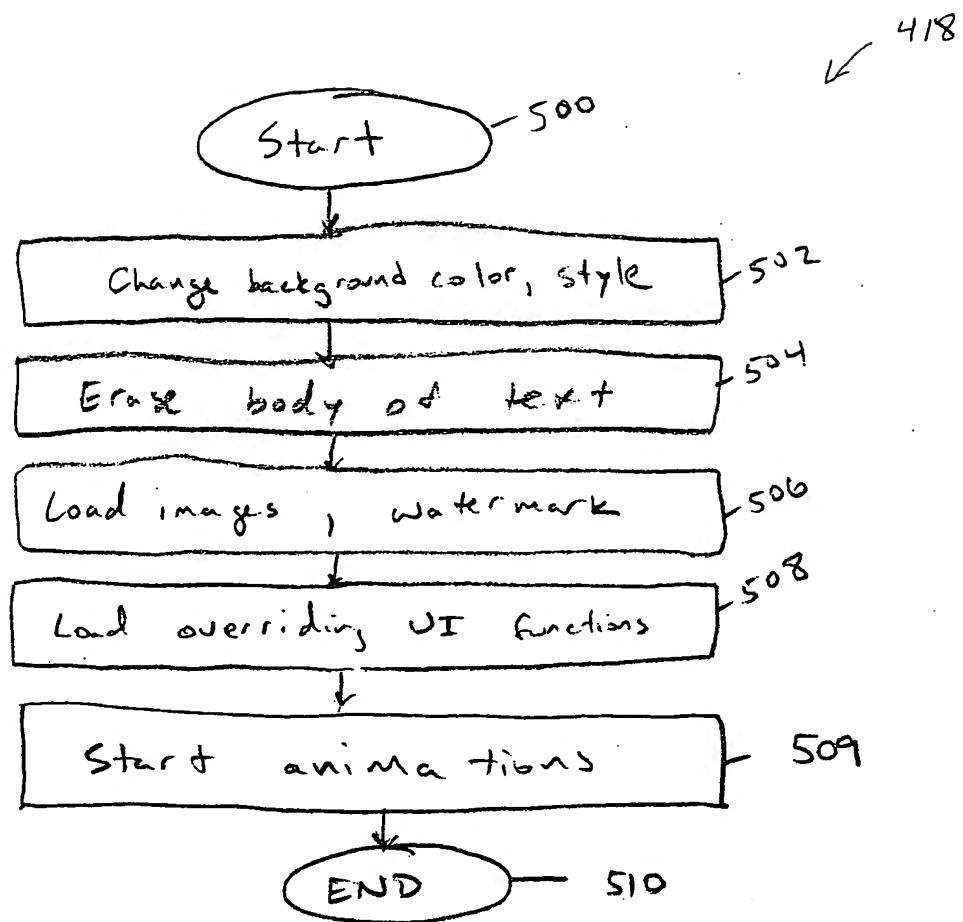 418
Start 500
Change background color, style 502
Erase body of text 504
Load images, watermark 506
Load overriding UI functions 508
Start animations 509
END 510